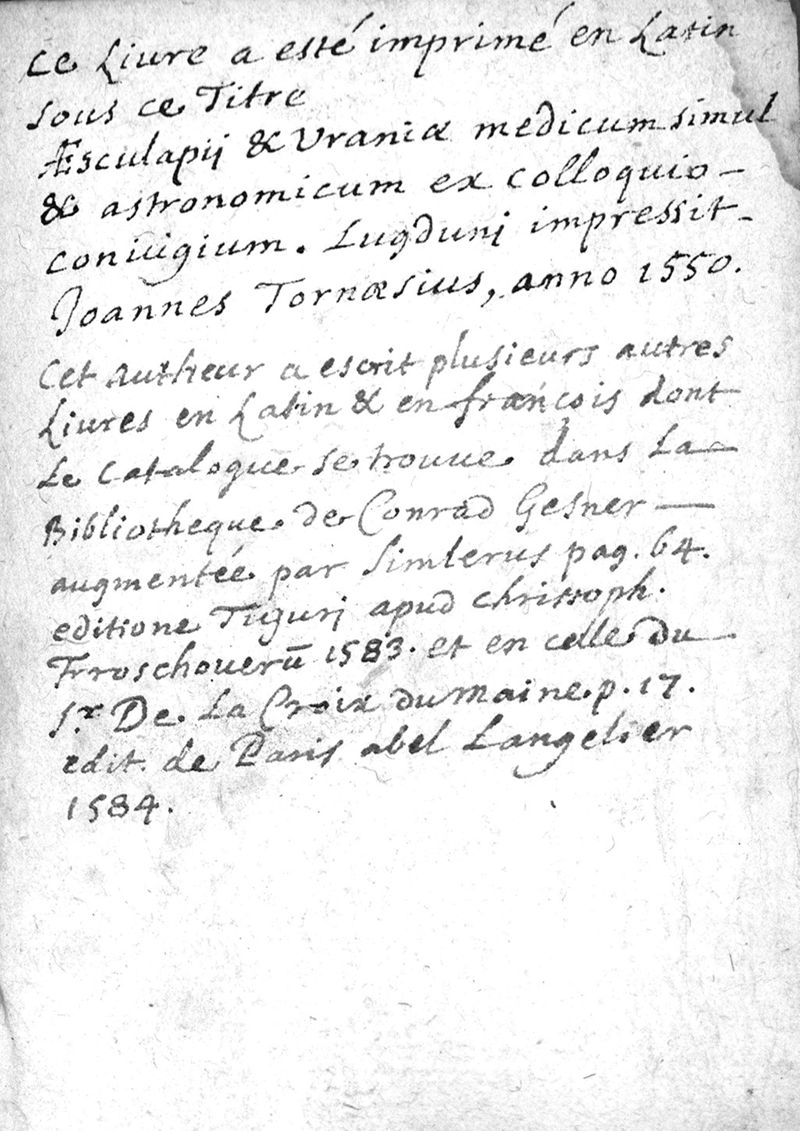 Ce Liure a esté imprimé en Latin
sous ce Titre
Æsculapij & Uraniæ medicum simul
& astronomicum ex colloquio –
coniugium. Lugdunj impressit –
Joannes Tornæsius, anno 1550.
Cet Autheur a escrit plusieurs autres
Liures en Latin & en francois dont
Le Catalogue se trouue dans La –
Bibliotheque de Conrad Gesner —
augmentée par Simlerus pag. 64.
editione Tigurj apud christoph.
Frroschouerū 1583. et en celle du –
Sr. De La Croix du maine p. 17.
edit. de Paris abel Langelier
1584.